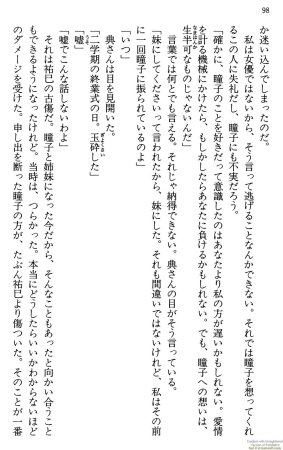 98
か迷い込んでしまったのだ。
私は女優ではないから、そう言って逃げることなんかできない。それでは瞳子を想ってくれ
るこの人に失礼だし、瞳子にも不実だろう。
「確かに、瞳子のことを好きだって意識したのはあなたより私の方が遅いかもしれない。愛情
を計る機械にかけたら、もしかしたらあなたに負けるかもしれない。でも、瞳子への想いは、
生半可なものじゃないんだ」
言葉では何とでも言える。それじゃ納得できない。典さんの目がそう言っている。
「妹にしてくださいって言われたから、妹にした。それも間違いではないけれど、私はその前
に一回瞳子に振られているのよ」
「いつ」
典さんは目を見開いた。
「二学期の終業式の日。玉砕した」
「嘘」
「嘘でこんな話しないわよ」
それは祐巳の古傷だ。瞳子と姉妹になった今だから、そんなこともあったと向かい合うこと
もできるようになったけれど、当時は、つらかった。本当にどうしたらいいかわからないほど
のダメージを受けた。申し出を断った瞳子の方が、たぶん祐巳より傷ついた。そのことが一番